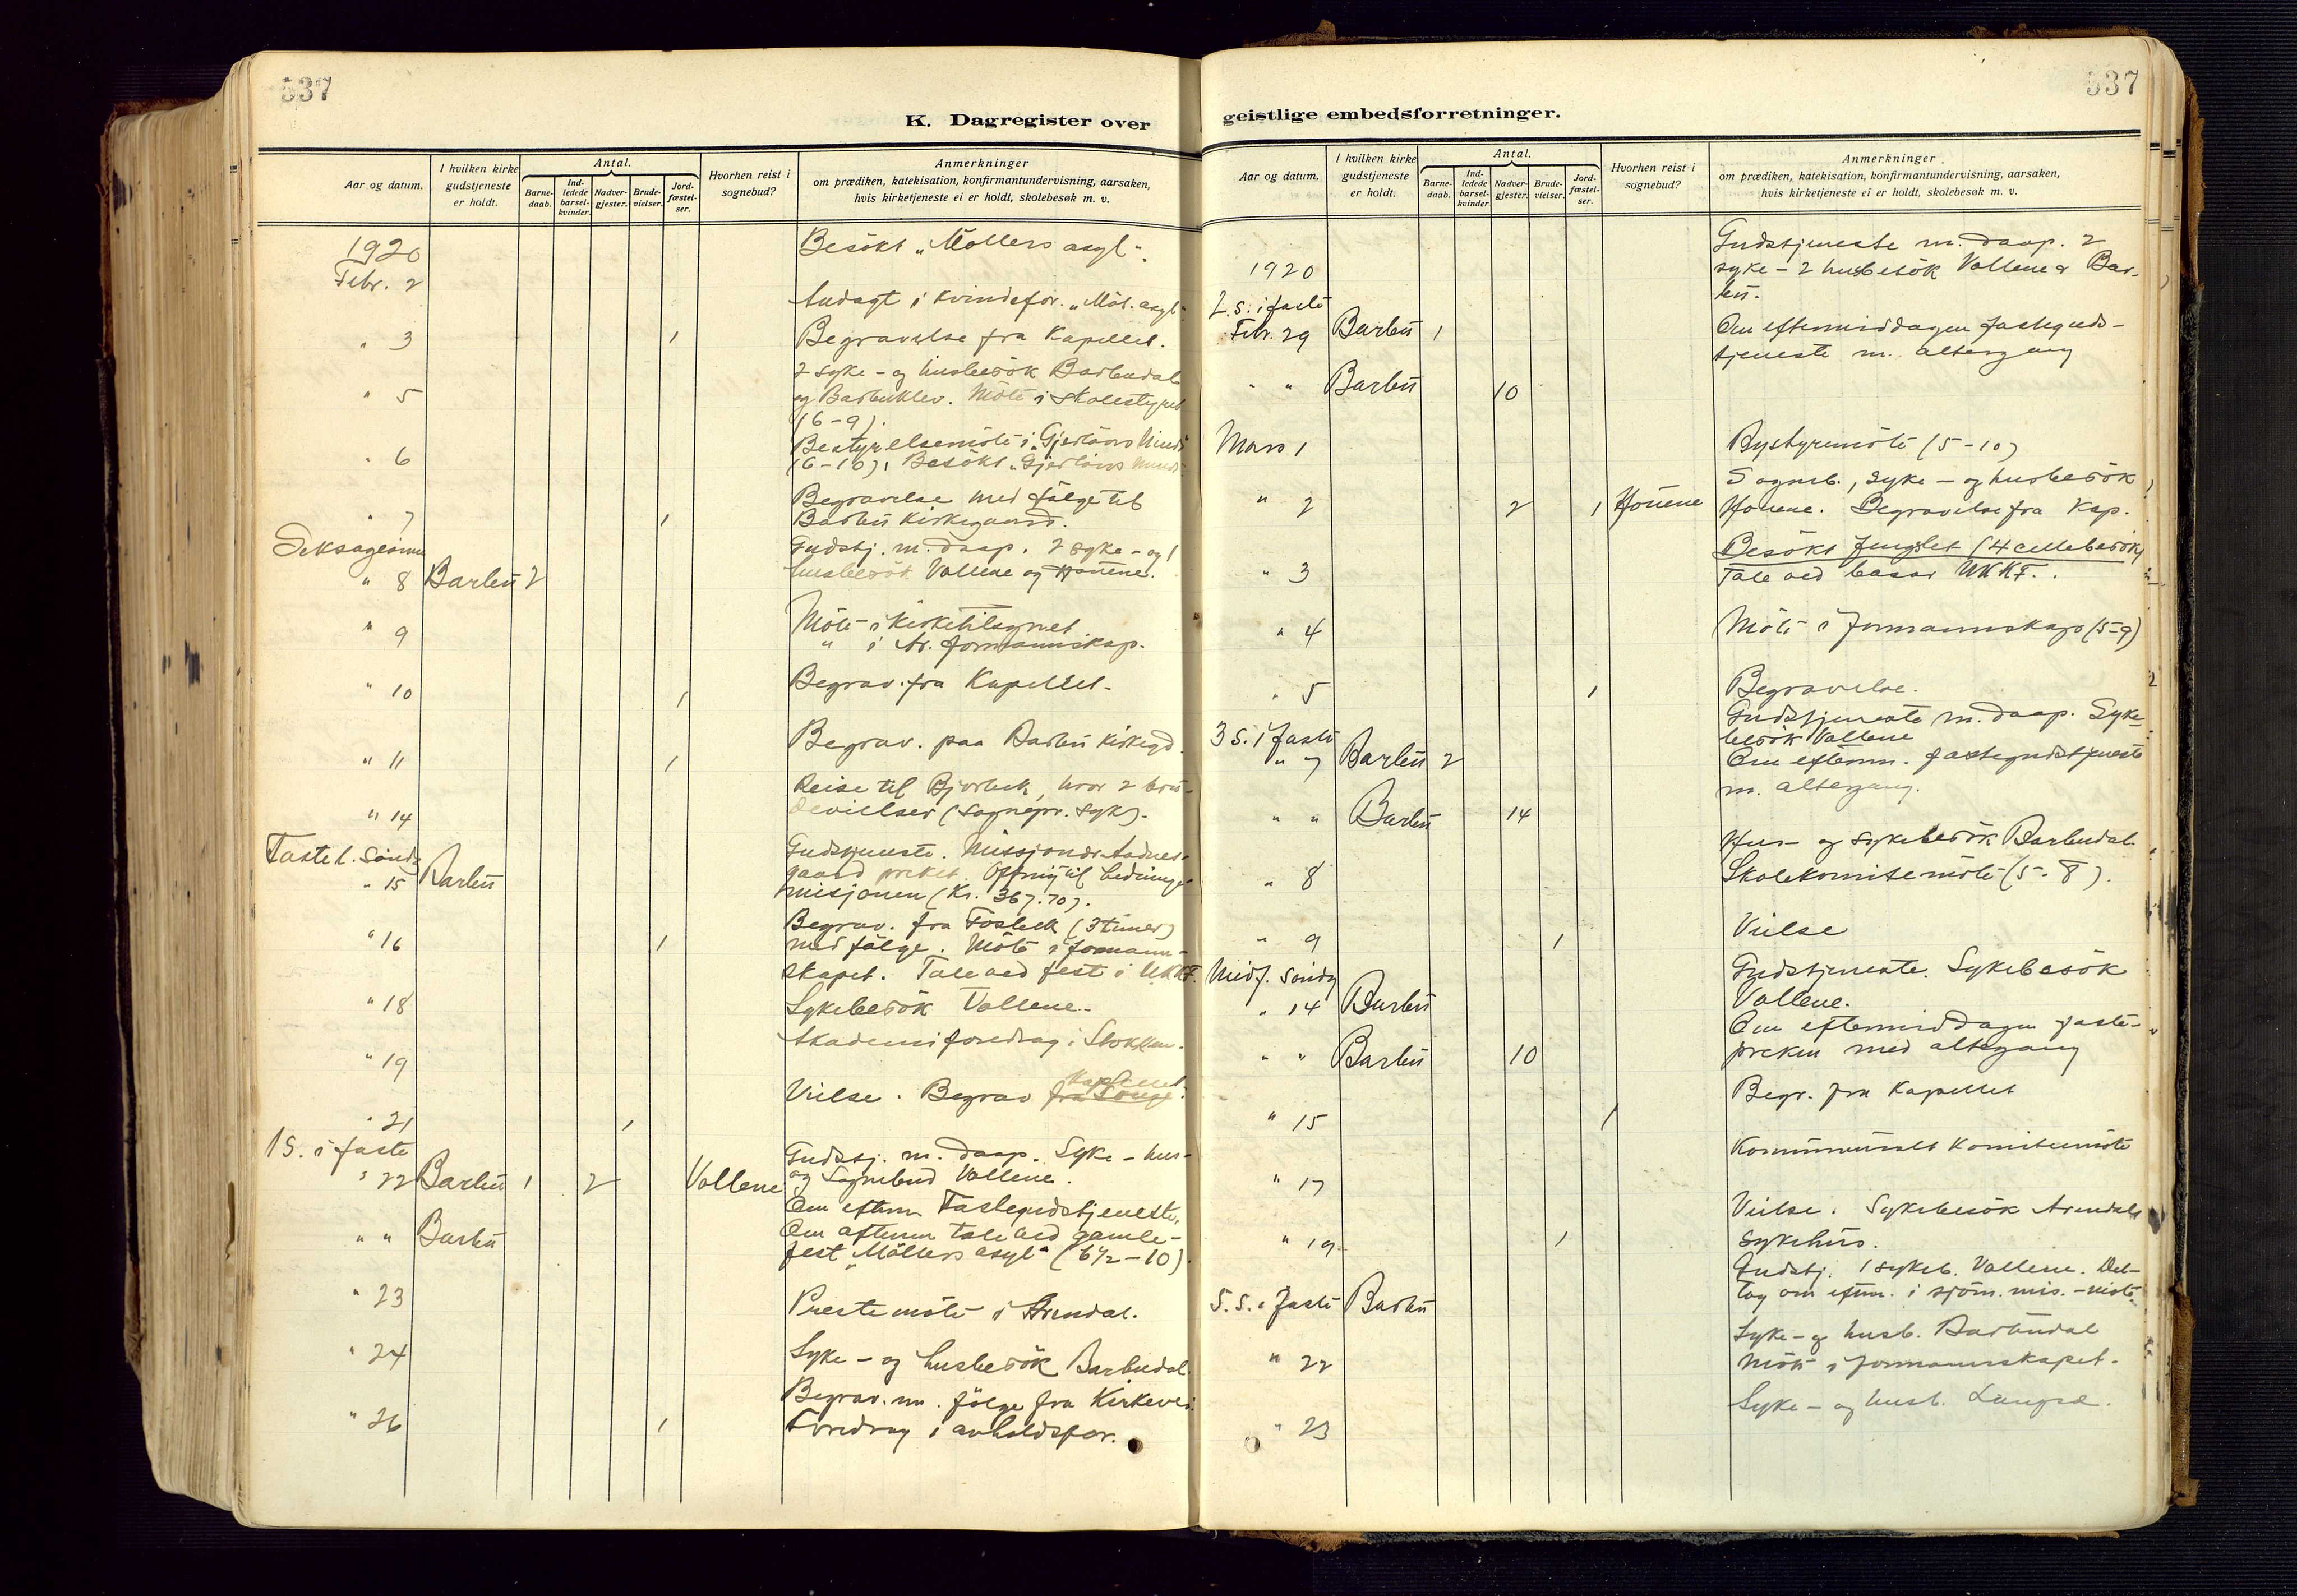 537
K. Dagregister over
Aar og datum.
I hvilken kirke gudstjeneste er holdt.
Antal.
Barne-daab.
Ind-ledede barsel-kvinder.
Nadver-gjester.
Brude-vielser.
Jord-fæstel-ser.
Hvorhen reist i sognebud?
Anmerkninger
om prædiken, katekisation, konfirmantundervisning, aarsaken,
hvis kirketjeneste ei er holdt, skolebesøk m. v.
1920
Febr. 2 Besökt „Möllers asyl".
Andagt i Kvindefor. „Möl. asyl"
" 3 1 Begravelse fra Kapellet.
" 5 2 syke- og husbesök Barbudal
og Barbuklev. Möte i skolestyret
(6-9).
" 6 Bestyrelsemöte i „Gjerlövs Minde"
(6-10), Besökt „Gjerlövs Minde"
" 7 1 Begravelse med fölge til
Barbu Kirkegaard.
Seksagesima
" 8 Barbu 2 Gudstj. m. daap. 2 syke- og 1
husbesök Vollene og Houene.
" 9 Möte i Kirketilsynet
" i Ar. formannskap.
" 10 1 Begrav. fra Kapellet.
" 11 1 Begrav. paa Barbu Kirkegd.
" 14 Reise til Bjorbek, hvor 2 bru-
devielser (sognepr. syk).
Fastel. Söndg
" 15 Barbu Gudstjeneste. Missjonær Aadnes-
gaard preket. Offring til hedninge-
misjonen (Kr. 367.70).
" 16 1 Begrav. fra Fosbek (3 timer)
med fölge. Möte i formann-
skapet. Tale ved fest i U.K.K.F.
" 18 Sykebesök Vollene.
" 19 Akademiforedrag i Stokken.
" 21 1 Vielse. Begrav fra Songe. Kapellet.
1 S. i faste
" 22 Barbu 1 2 Vollene Gudstj. m. daap. Syke- hus-
og Sognebud Vollene.
" " Barbu Om efterm Fastegudstjeneste.
Om aftenen tale ved gamle-
fest „Möllers asyl" (6½-10)
" 23 Prestemöte i Arendal.
" 24 Syke- og husbesök Barbudal.
" 26 1 Begrav. m. fölge fra Kirkevei.
Foredrag i avholdsfor.
537
geistlige embedsforretninger.
Aar og datum.
I hvilken kirke gudstjeneste er holdt.
Antal.
Barne-daab.
Ind-ledede barsel-kvinder
Nadver-gjester.
Brude-vielser.
Jord-fæstel-ser.
Hvorhen reist i sognebud?
Anmerkninger
om prædiken, katekisation, konfirmantundervisning, aarsaken,
hvis kirketjeneste ei er holdt, skolebesøk m. v.
1920
2. S. i faste
Febr. 29 Barbu 1 Gudstjeneste m. daap. 2
syke- 2 husbesök Vollene & Bar-
bu.
" " Barbu 10 Om eftermiddagen fasteguds-
tjeneste m. altergang
Mars 1 Bystyremöte (5-10)
" 2 2 1 Houene Sogneb., syke- og husbesök
Houene. Begravelse fra Kap.
" 3 Besökt fengslet (4 cellebesök)
Tale ved basar UKKF.
" 4 Möte i formannskap (5-9)
" 5 1 Begravelse.
3 S. i faste
" 7 Barbu 2 Gudstjeneste m. daap. Syke-
besök Vollene
" " Barbu 14 Om efterm. fastegudstjeneste
m. altergang.
" 8 Hus- og sykebesök Barbudal.
Skolekomitemöte (5-8).
" 9 1 Vielse
Midf. Söndg
" 14 Barbu Gudstjeneste. Sykebesök
Vollene.
" " Barbu 10 Om eftermiddagen faste-
preken med altergang
" 15 1 Begr. fra Kapellet
" 17 Kommunalt Komitemöte
" 19. 1 Vielse. Sykebesök Arendals
sykehus.
5. S. i faste Barbu Gudstj. 1 sykeb. Vollene. Del-
tog om efterm. i sjöm. mis.-möte.
" 22 Syke- og husb. Barbudal
Möte i formannskapet.
" 23 Syke- og husb. Langsæ.